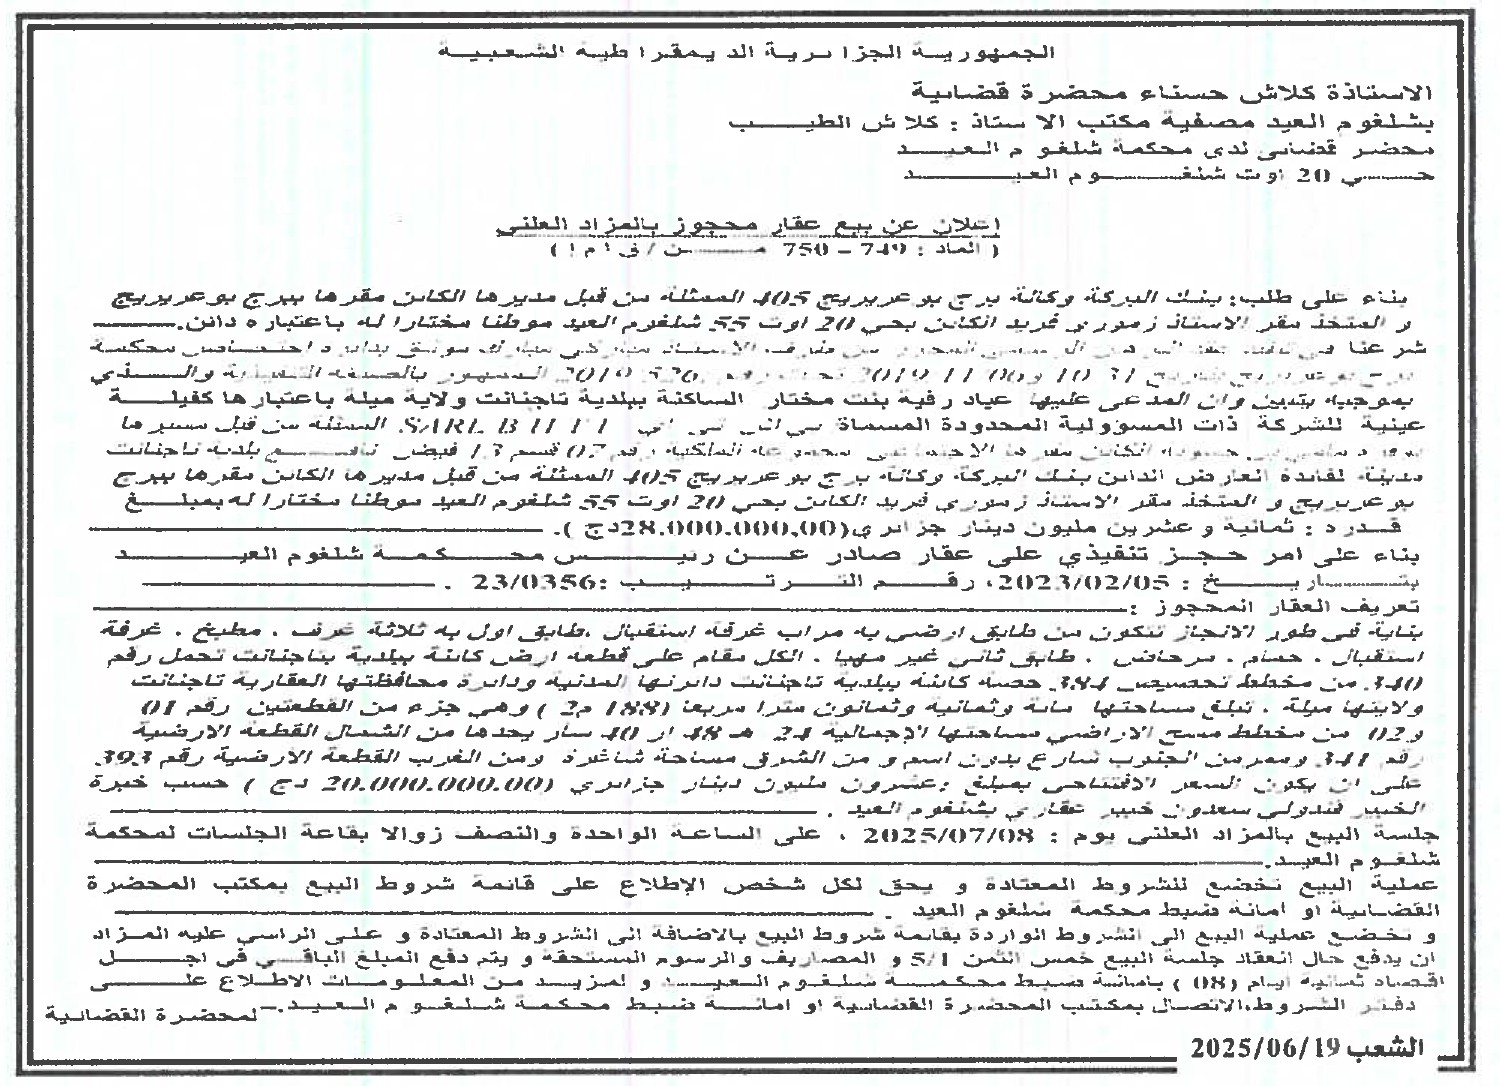 الجمهورية الجزائرية الديمقراطية الشعبية
الاستاذة كلاش حسناء محضرة قضائية
بشلغوم العيد مصفية مكتب الاستاذ : كلاش الطيب
محضر قضائي لدى محكمة شلغوم العيد
حي 20 اوت شلغوم العيد
إعلان عن بيع عقار محجوز بالمزاد العلني
( الماد : 749 - 750 من / ق ا م ا )
بناء على طلب: بنك البركة وكالة برج بوعريريج 405 الممثلة من قبل مديرها الكائن مقرها ببرج بوعريريج
و المتخذ مقر الاستاذ زموري فريد الكائن بحي 20 اوت 55 شلغوم العيد موطنا مختارا له باعتباره دائن.
شرعنا في محكمة
بموجبه يتبين وان المدعى عليها عياد رقية بنت مختار الساكنة ببلدية تاجنانت ولاية ميلة باعتبارها كفيلة
عينية للشركة ذات المسؤولية المحدودة المسماة SARL الممثلة من قبل مسيرها
بلدية تاجنانت
مدينة لفائدة العارض الدائن بنك البركة وكالة برج بوعريريج 405 الممثلة من قبل مديرها الكائن مقرها ببرج
بوعريريج و المتخذ مقر الاستاذ زموري فريد الكائن بحي 20 اوت 55 شلغوم العيد موطنا مختارا له بمبلغ
قدره : ثمانية و عشرين مليون دينار جزائري (28.000.000,00دج ).
بناء على امر حجز تنفيذي على عقار صادر عن رئيس محكمة شلغوم العيد
بتاريخ : 2023/02/05، رقم الترتيب :23/0356 .
تعريف العقار المحجوز :
بناية في طور الانجاز تتكون من طابق ارضي به مراب غرفة استقبال ،طابق اول به ثلاثة غرف ، مطبخ ، غرفة
استقبال ، حمام ، مرحاض ، طابق ثاني غير مهيا ، الكل مقام على قطعة ارض كائنة ببلدية بتاجنانت تحمل رقم
340 من مخطط تخصيص 384 حصة كائنة ببلدية تاجنانت دائرتها المدنية ودائرة محافظتها العقارية تاجنانت
ولايتها ميلة ، تبلغ مساحتها مائة وثمانية وثمانون مترا مربعا (188 م2 ) وهي جزء من القطعتين رقم 01
و02 من مخطط مسح الاراضي مساحتها الإجمالية 24 هـ 48 ار 40 سار يحدها من الشمال القطعة الارضية
رقم 341 وممر من الجنوب شارع بدون اسم و من الشرق مساحة شاغرة ومن الغرب القطعة الارضية رقم 393
على ان يكون السعر الافتتاحي بمبلغ :عشرون مليون دينار جزائري (20.000.000.00 دج ) حسب خبرة
الخبير قندولي سعدون خبير عقاري بشلغوم العيد .
جلسة البيع بالمزاد العلني يوم : 2025/07/08 ، على الساعة الواحدة والنصف زوالا بقاعة الجلسات لمحكمة
شلغوم العيد.
عملية البيع تخضع للشروط المعتادة و يحق لكل شخص الإطلاع على قائمة شروط البيع بمكتب المحضرة
القضائية او امانة ضبط محكمة شلغوم العيد .
و تخضع عملية البيع الى الشروط الواردة بقائمة شروط البيع بالاضافة الى الشروط المعتادة و على الراسي عليه المزاد
ان يدفع حال انعقاد جلسة البيع خمس الثمن 5/1 و المصاريف والرسوم المستحقة و يتم دفع المبلغ الباقي في اجل
اقصاه ثمانية ايام (08 ) بامانة ضبط محكمة شلغوم العيد و لمزيد من المعلومات الاطلاع على
دفتر الشروط،الاتصال بمكتب المحضرة القضائية او امانة ضبط محكمة شلغوم العيد.-
لمحضرة القضائية
الشعب 2025/06/19